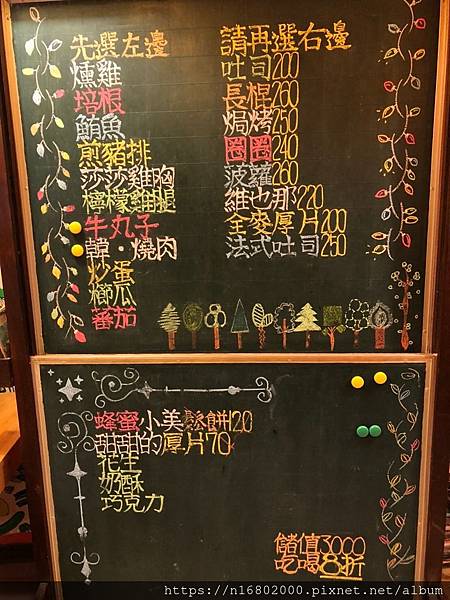 先選左邊
燻雞
培根
鮪魚
煎豬排
莎莎雞胸
檸檬雞腿
牛丸子
韓·燒肉
炒蛋
櫛瓜
蕃茄
請再選右邊
吐司200
長棍260
焗烤250
圈圈240
菠蘿260
維也那220
全麥厚片200
法式吐司250
蜂蜜小美鬆餅120
甜甜的厚片70
花生
奶酥
巧克力
儲值3000
吃喝8折
https://n16802000.pixnet.net/album